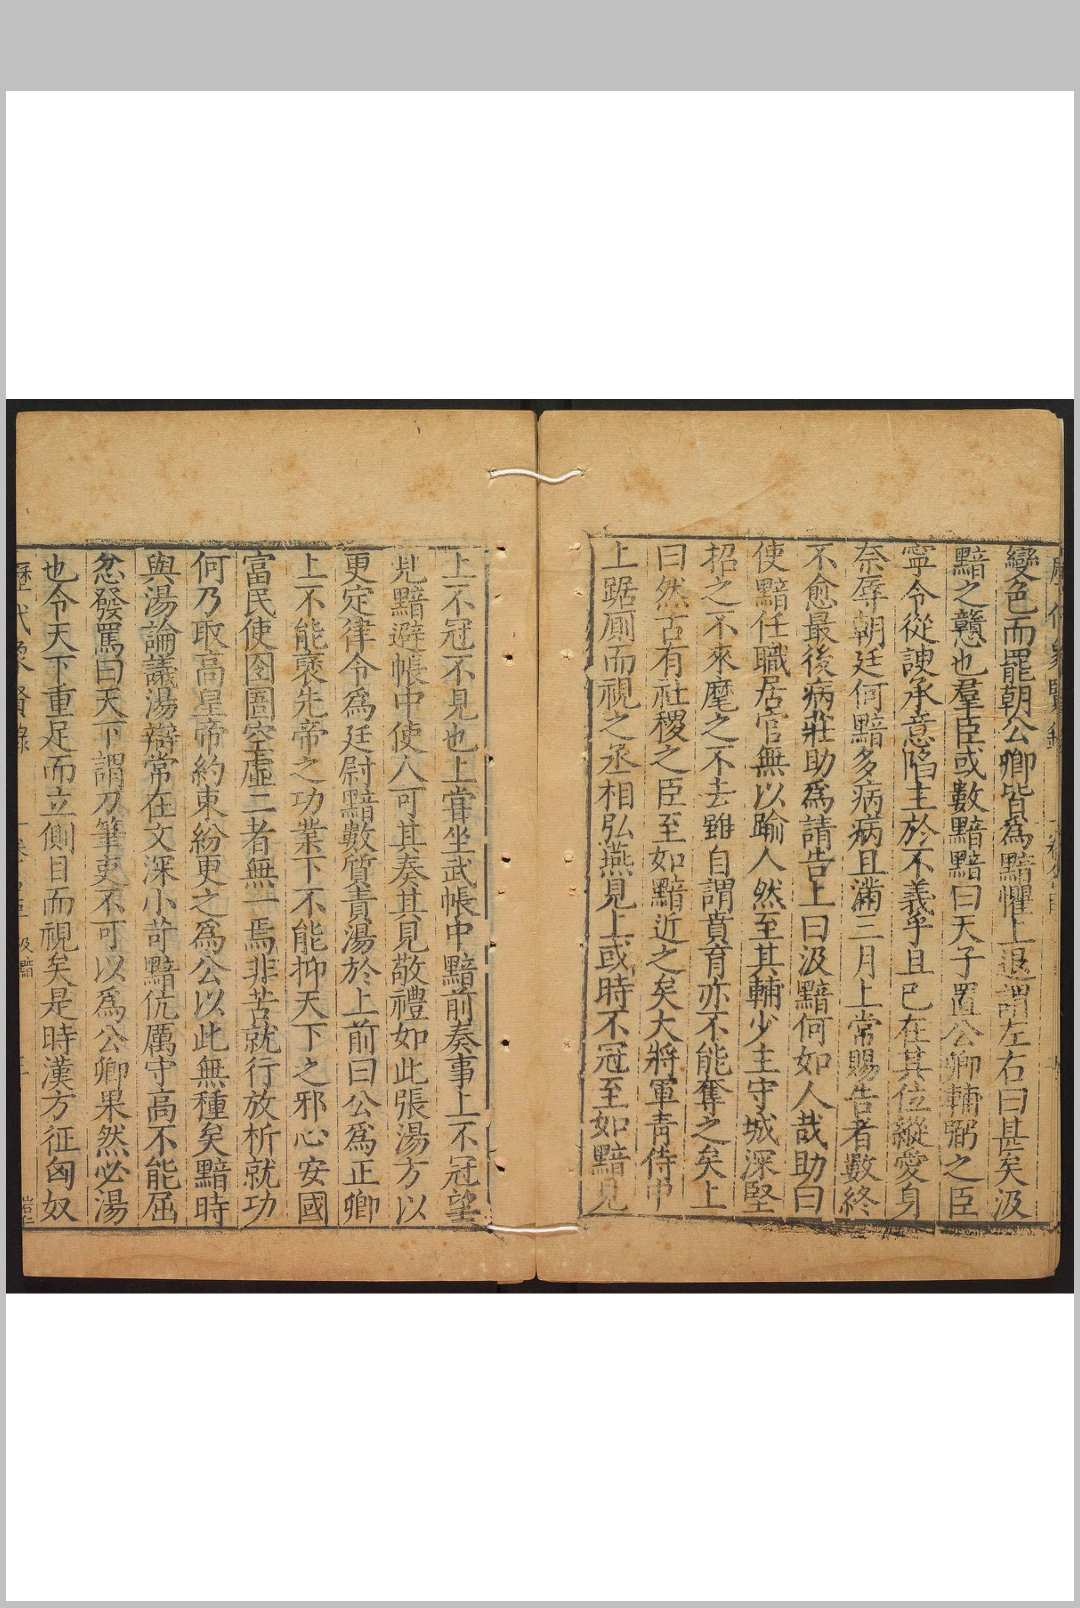 變色而罷朝公卿皆為黯懼上退謂左右曰甚矣汲
黯之戇也羣臣或數黯黯曰天子置公卿輔弼之臣
寧令從諛承意陷主於不義乎且已在其位縱愛身
奈辱朝廷何黯多病病且滿三月上常賜告者數終
不愈最後病莊助爲請告上曰汲黯何如人哉助曰
使黯任職居官無以踰人然至其輔少主守城深堅
招之不來麾之不去雖自謂賁育亦不能奪之矣上
曰然古有社稷之臣至如黯近之矣大將軍青侍中
上踞厠而視之丞相弘燕見上或時不冠至如黯見
上不冠不見也上甞坐武帳中黯前奏事上不冠望
見黯避帳中使人可其奏其見敬禮如此張湯方以
更定律令爲廷尉黯數質責湯於上前曰公爲正卿
上不能褒先帝之功業下不能抑天下之邪心安國
富民使囹圄空虛二者無一焉非苦就行放析就功
何乃取高皇帝約束紛更之爲公以此無種矣黯時
與湯論議湯辯常在文深小苛黯伉厲守高不能屈
忿發罵曰天下謂刀筆吏不可以爲公卿果然必湯
也令天下重足而立側目而視矣是時漢方征匈奴
歷代 賢錄 汲黯